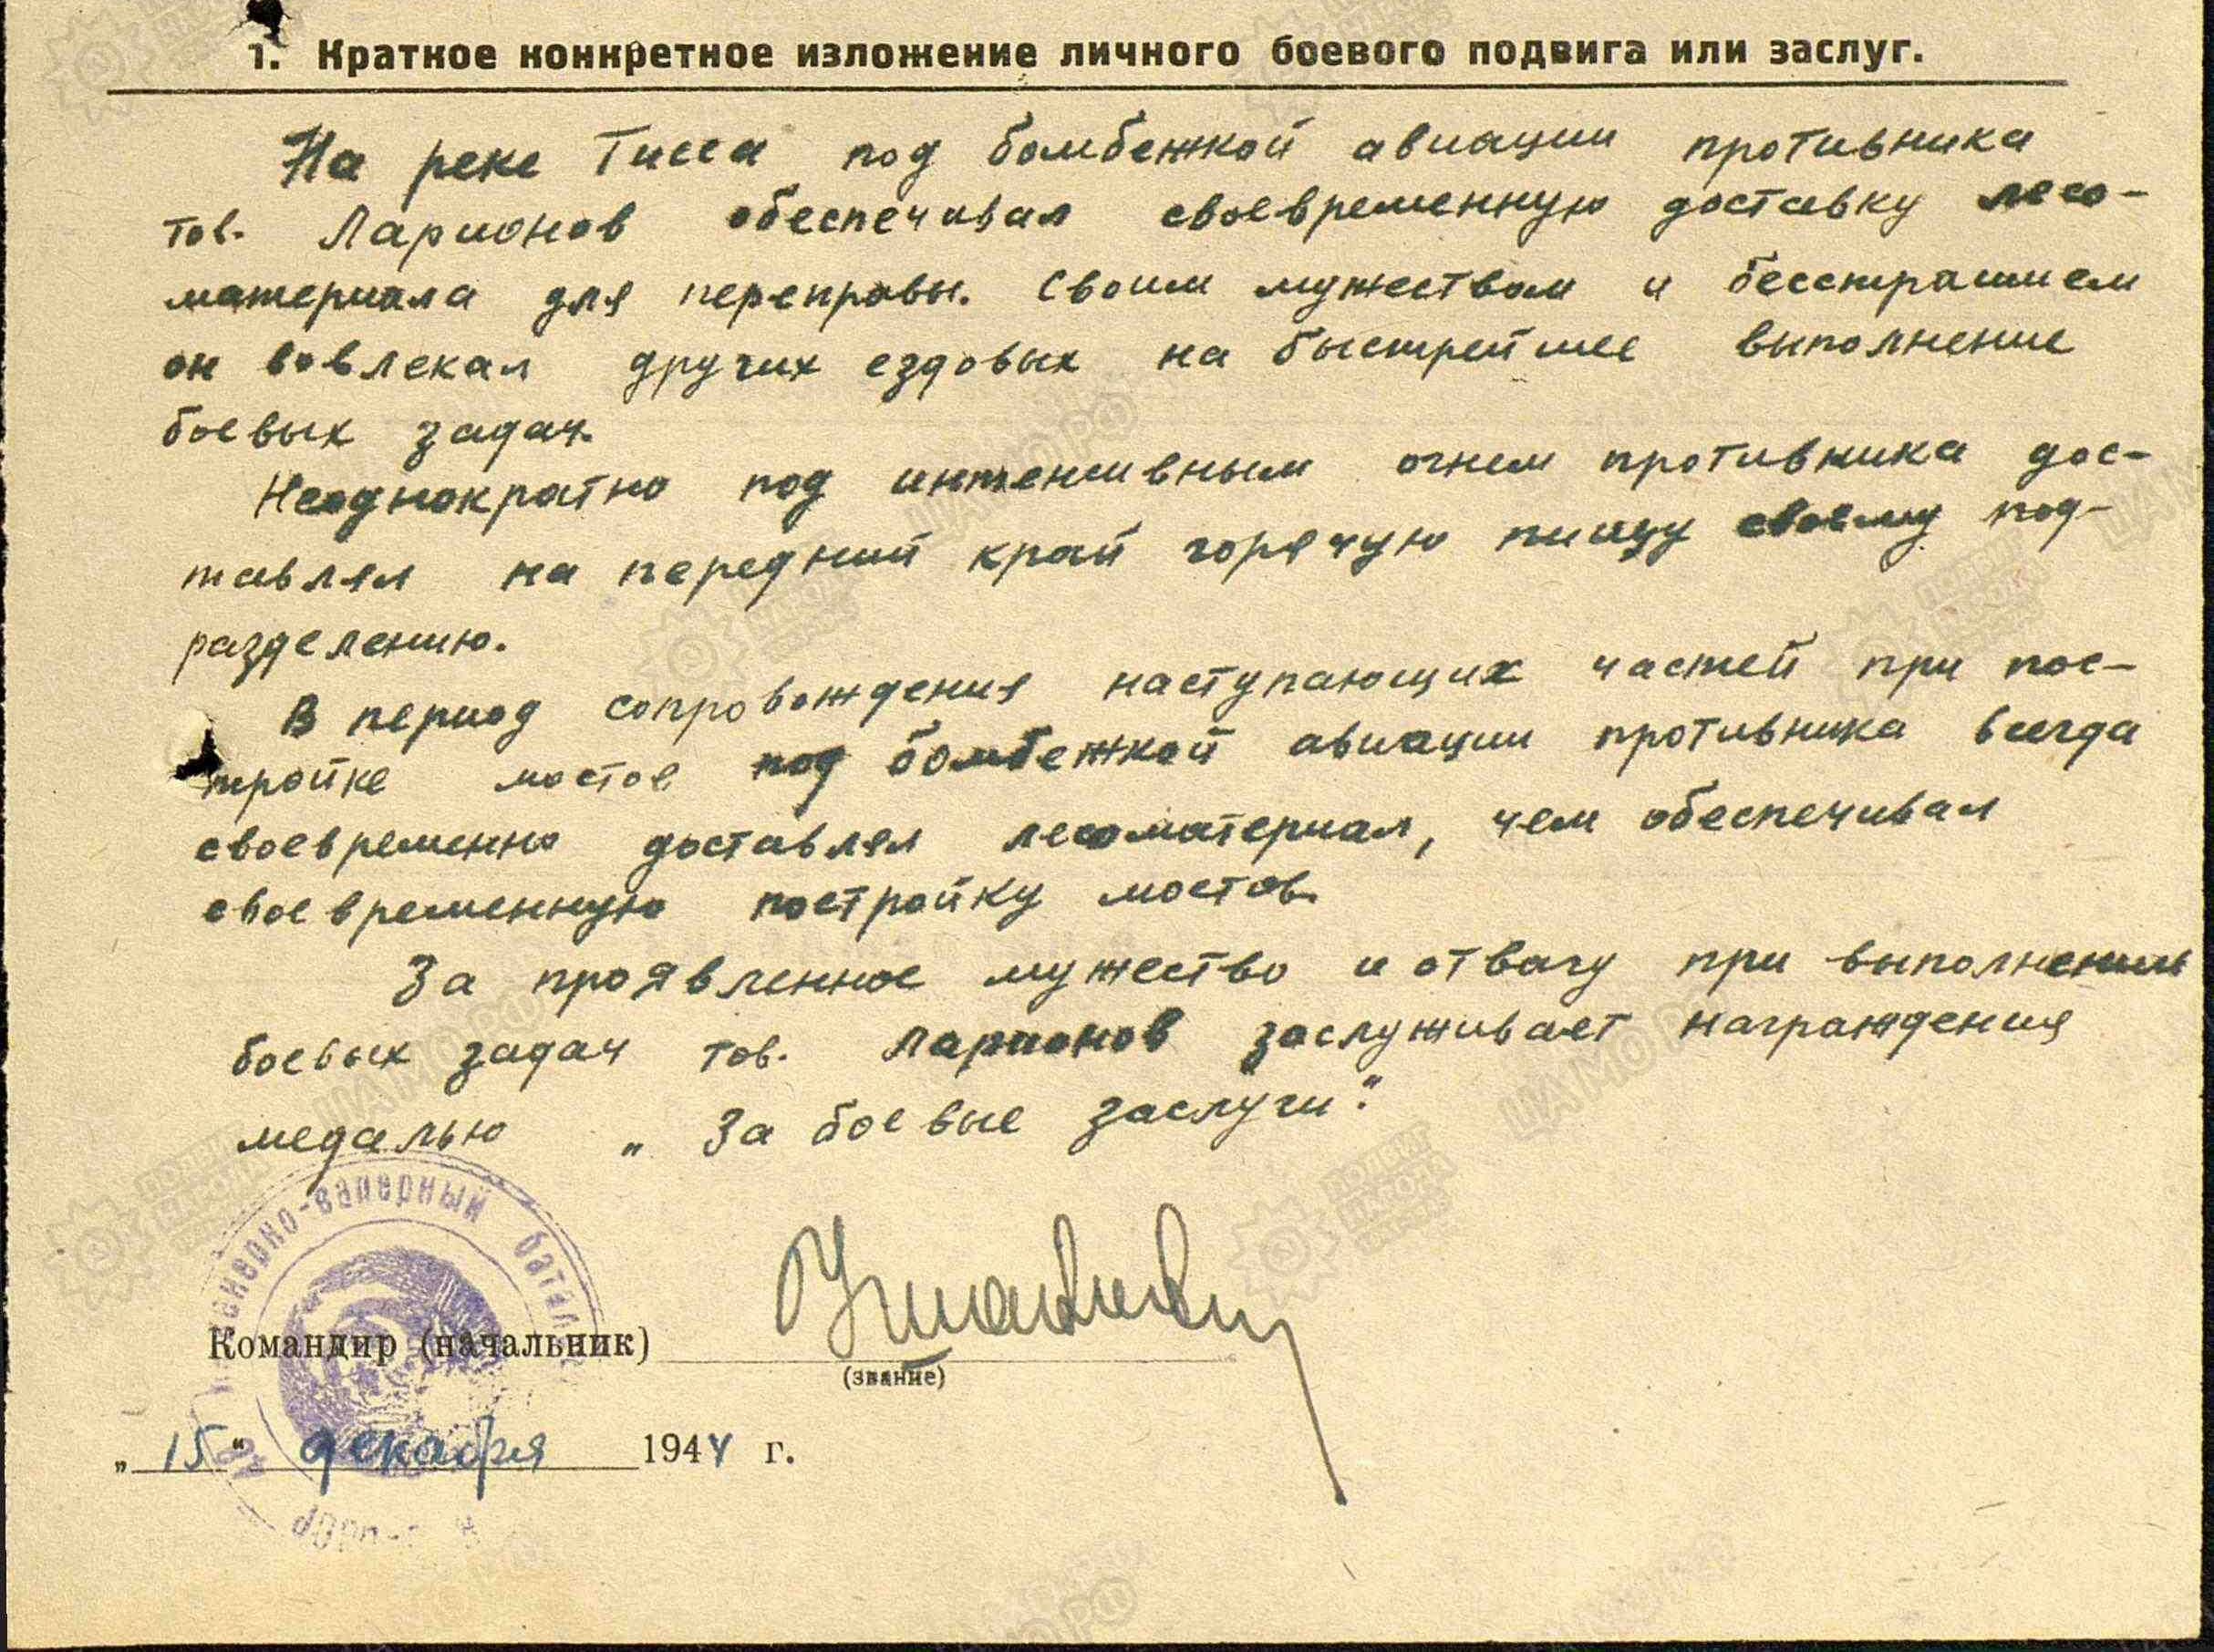 1. Краткое конкретное изложение личного боевого подвига или заслуг.
На реке Тисса под бомбежкой авиации противника
тов. Ларионов обеспечивал своевременную доставку лесо-
материала для переправы. Своим мужеством и бесстрашием
он вовлекал других ездовых на быстрейшее выполнение
боевых задач.
Неоднократно под интенсивным огнем противника дос-
тавлял на передний край горячую пищу своему под-
разделению.
В период сопровождения наступающих частей при пос-
тройке мостов под бомбежкой авиации противника всегда
своевременно доставлял лесоматериал, чем обеспечивал
своевременную постройку мостов.
За проявленное мужество и отвагу при выполнении
боевых задач тов. Ларионов заслуживает награждения
медалью „За боевые заслуги".
Командир (начальник)
(звание)
„15" декабря 1944 г.
саперный
ЦАМО РФ
ПОДВИГ НАРОДА